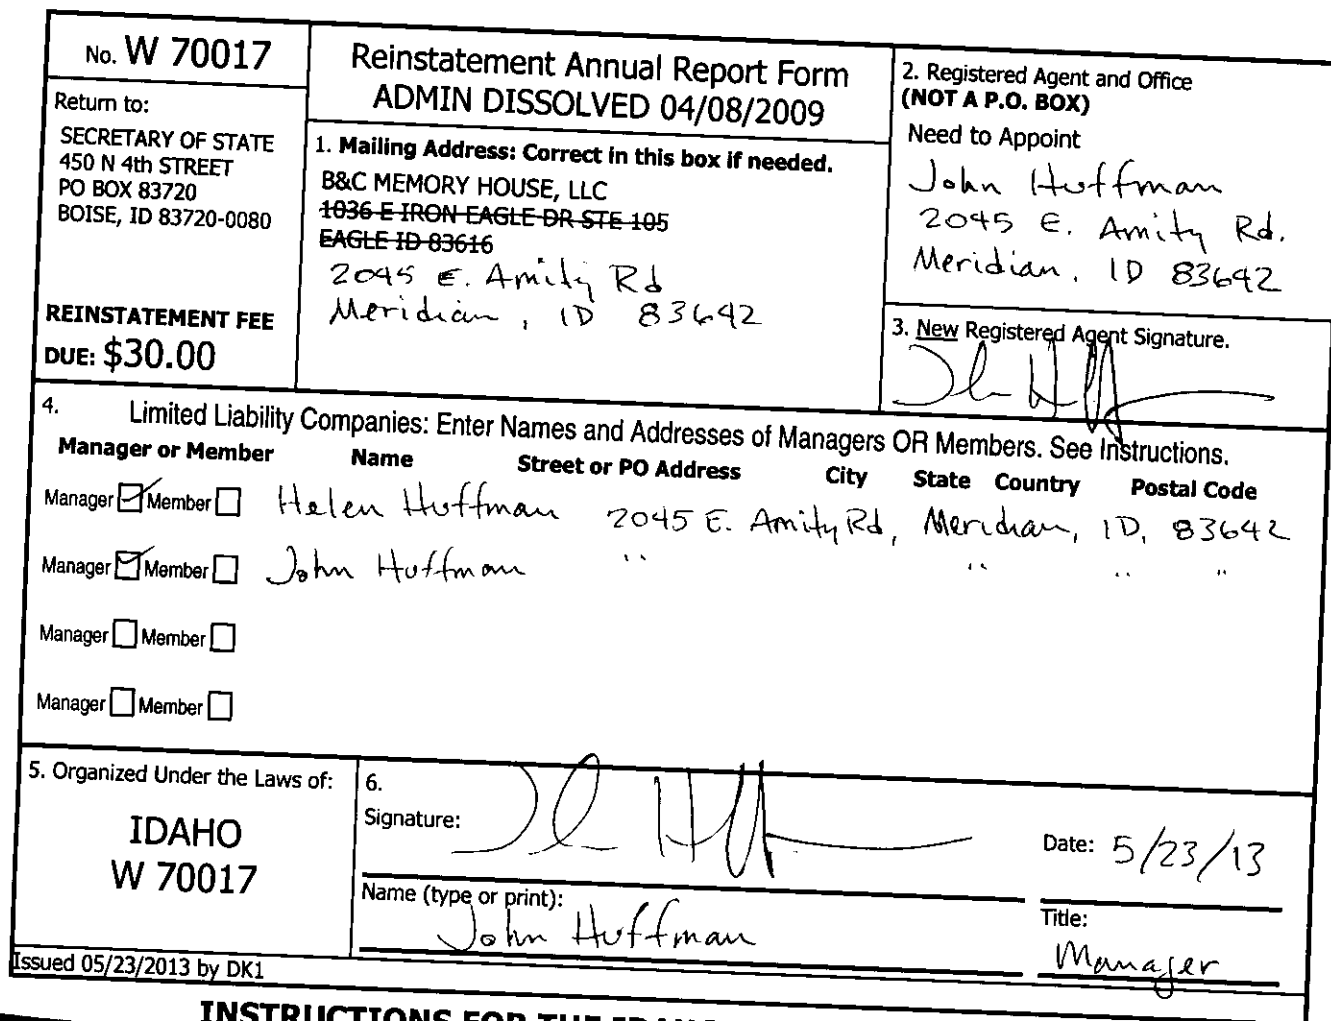 No. W 70017
Return to:
SECRETARY OF STATE
450 N 4th STREET
PO BOX 83720
BOISE, ID 83720-0080
REINSTATEMENT FEE
DUE: $30.00
Reinstatement Annual Report Form
ADMIN DISSOLVED 04/08/2009
1. Mailing Address: Correct in this box if needed.
B&C MEMORY HOUSE, LLC
1036 E IRON EAGLE DR STE 105
EAGLE ID 83616
2045 E. Amity Rd
Meridian, ID 83642
2. Registered Agent and Office
(NOT A P.O. BOX)
Need to Appoint
John Huffman
2045 E. Amity Rd.
Meridian, ID 83642
3. New Registered Agent Signature.
4. Limited Liability Companies: Enter Names and Addresses of Managers OR Members. See Instructions.
Manager or Member Name Street or PO Address City State Country Postal Code
Manager Member Helen Huffman 2045 E. Amity Rd, Meridian, ID, 83642
Manager Member John Huffman " " " "
Manager Member
Manager Member
5. Organized Under the Laws of:
IDAHO
W 70017
6.
Signature:
Date: 5/23/13
Name (type or print):
John Huffman
Title:
Manager
Issued 05/23/2013 by DK1